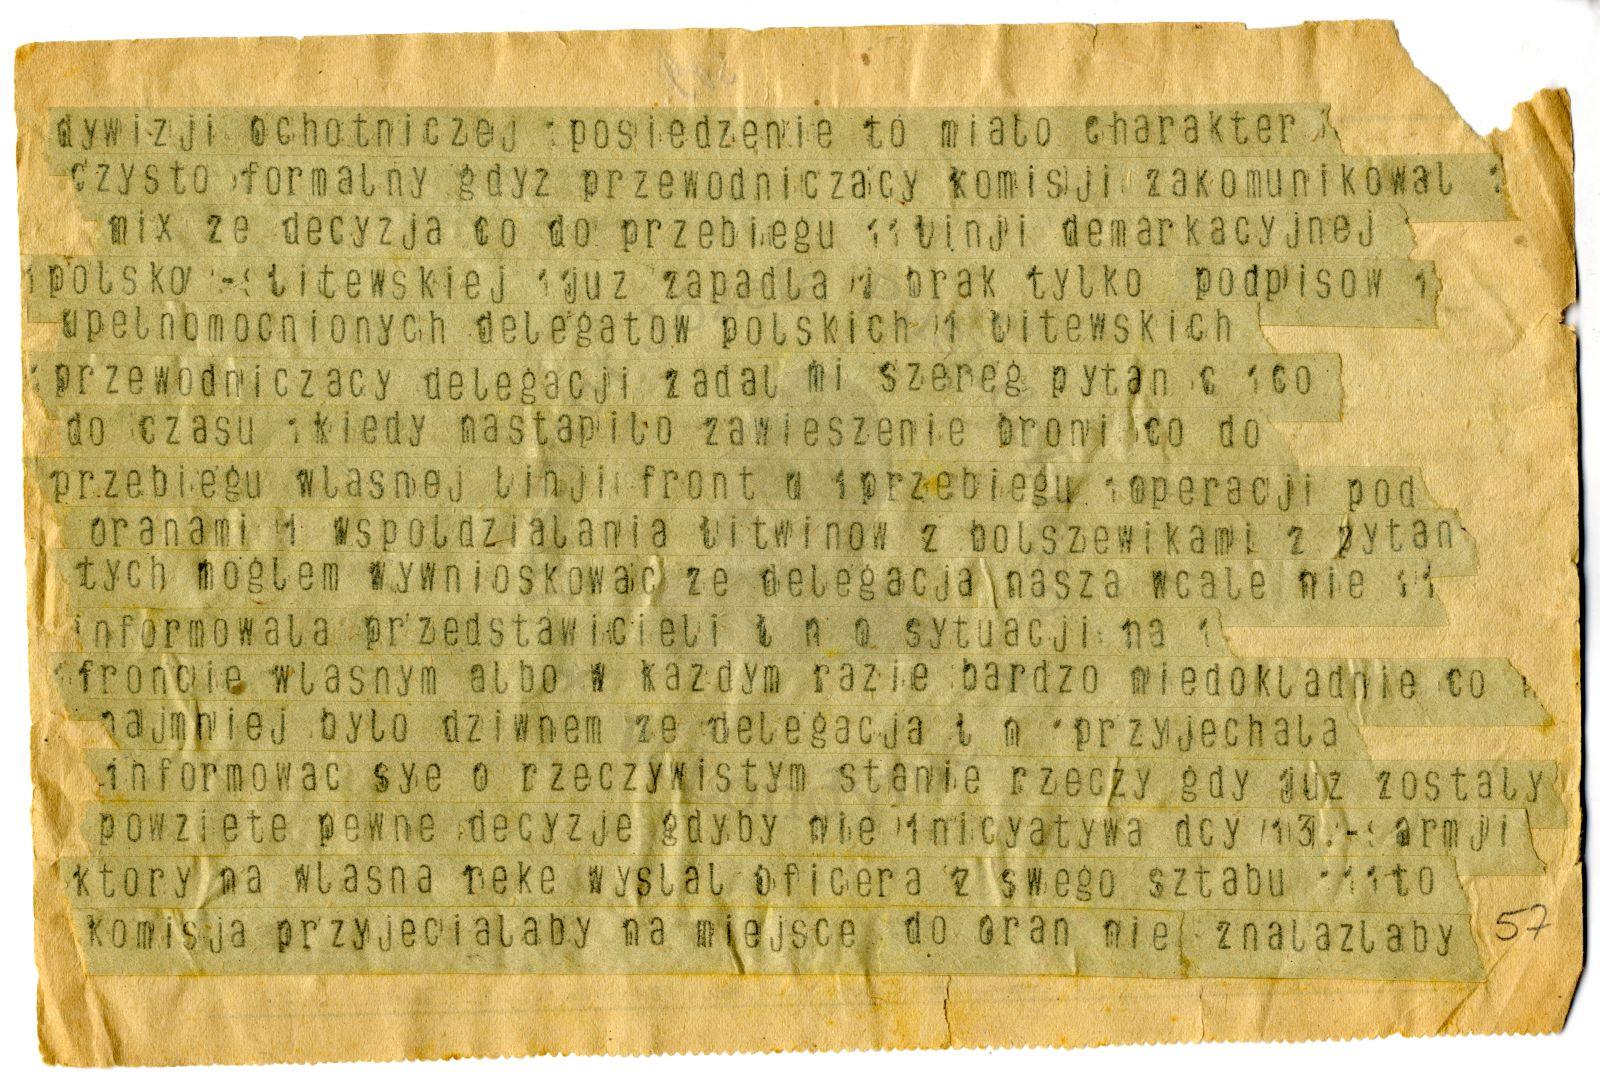 dywizji ochotniczej posiedzenie to mialo charakter
czysto formalny gdyz przewodniczacy komisji zakomunikowal
mix ze decyzja co do przebiegu linji demarkacyjnej
polsko - litewskiej juz zapadla i brak tylko podpisow
upelnomocnionych delegatow polskich i litewskich
przewodniczacy delegacji zadal mi szereg pytan c co
do czasu kiedy nastapilo zawieszenie broni co do
przebiegu wlasnej linji front u przebiegu operacji pod
oranami i wspoldzialania litwinow z bolszewikami z pytan
tych moglem wywnioskowac ze delegacja nasza wcale nie
informowala przedstawicieli l n o sytuacji na
froncie wlasnym albo w kazdym razie bardzo niedokladnie co
najmniej bylo dziwnem ze delegacja l n przyjechala
informowac sye o rzeczywistym stanie rzeczy gdy juz zostaly
powziete pewne decyzje gdyby nie inicyatywa dcy 3.- armji
ktory na wlasna reke wyslal oficera z swego sztabu to
komisja przyjecialaby na miejsce do oran nie znalazlaby
57